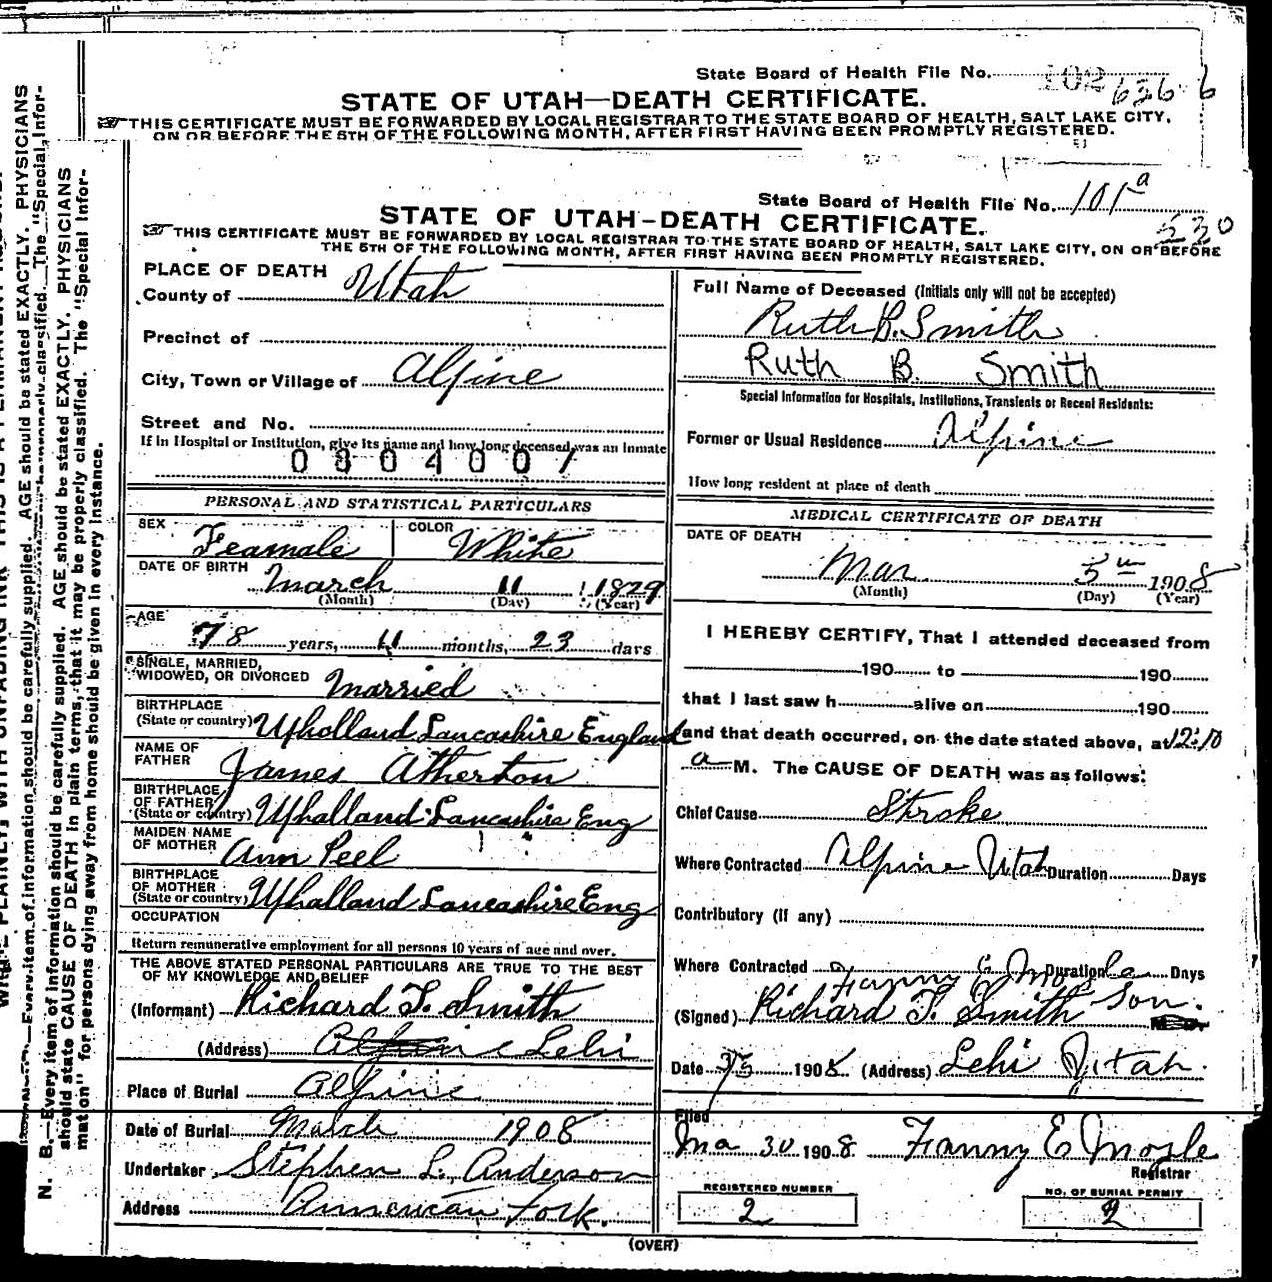 State Board of Health File No. 102 636 6
STATE OF UTAH—DEATH CERTIFICATE.
THIS CERTIFICATE MUST BE FORWARDED BY LOCAL REGISTRAR TO THE STATE BOARD OF HEALTH, SALT LAKE CITY,
ON OR BEFORE THE 5TH OF THE FOLLOWING MONTH, AFTER FIRST HAVING BEEN PROMPTLY REGISTERED.
State Board of Health File No. 101 a
530
STATE OF UTAH-DEATH CERTIFICATE.
THIS CERTIFICATE MUST BE FORWARDED BY LOCAL REGISTRAR TO THE STATE BOARD OF HEALTH, SALT LAKE CITY, ON OR BEFORE
THE 5TH OF THE FOLLOWING MONTH, AFTER FIRST HAVING BEEN PROMPTLY REGISTERED.
PLACE OF DEATH
County of Utah
Precinct of
City, Town or Village of Alpine
Street and No.
If in Hospital or Institution, give its name and how long deceased was an inmate
0304007
PERSONAL AND STATISTICAL PARTICULARS
SEX Feamale COLOR White
DATE OF BIRTH March 11 1829
(Month) (Day) (Year)
AGE
78 years, 11 months, 23 days
SINGLE, MARRIED,
WIDOWED, OR DIVORCED Married
BIRTHPLACE
(State or country) Upholland Lancashire England
NAME OF
FATHER James Atherton
BIRTHPLACE
OF FATHER
(State or country) Uphalland Lancashire Eng
MAIDEN NAME
OF MOTHER Ann Peel
BIRTHPLACE
OF MOTHER
(State or country) Uphalland Lancashire Eng
OCCUPATION
Return remunerative employment for all persons 10 years of age and over.
THE ABOVE STATED PERSONAL PARTICULARS ARE TRUE TO THE BEST
OF MY KNOWLEDGE AND BELIEF
(Informant) Richard T. Smith
(Address) Alpine Lehi
Place of Burial Alpine
Date of Burial March 1908
Undertaker Stephen L. Anderson
Address American Fork.
Full Name of Deceased (Initials only will not be accepted)
Ruth B. Smith
Ruth B. Smith
Special Information for Hospitals, Institutions, Transients or Recent Residents:
Former or Usual Residence Alpine
How long resident at place of death
MEDICAL CERTIFICATE OF DEATH
DATE OF DEATH
Mar 5 1908
(Month) (Day) (Year)
I HEREBY CERTIFY, That I attended deceased from
190 to 190
that I last saw h alive on 190
and that death occurred, on the date stated above, at 12:10
a M. The CAUSE OF DEATH was as follows:
Chief Cause Stroke
Where Contracted Alpine Utah Duration Days
Contributory (if any)
Where Contracted Duration Days
Fanny E Mosle
(Signed) Richard T. Smith Son.
Date 3/5 1908 (Address) Lehi Utah.
Filed
Ma 30 1908 Fanny E Mosle
Registrar
REGISTERED NUMBER
2
NO. OF BURIAL PERMIT
2
(OVER)
N. B.—Every item of information should be carefully supplied. AGE should be stated EXACTLY. PHYSICIANS
should state CAUSE OF DEATH in plain terms, that it may be properly classified. The "Special Infor-
mation" for persons dying away from home should be given in every instance.